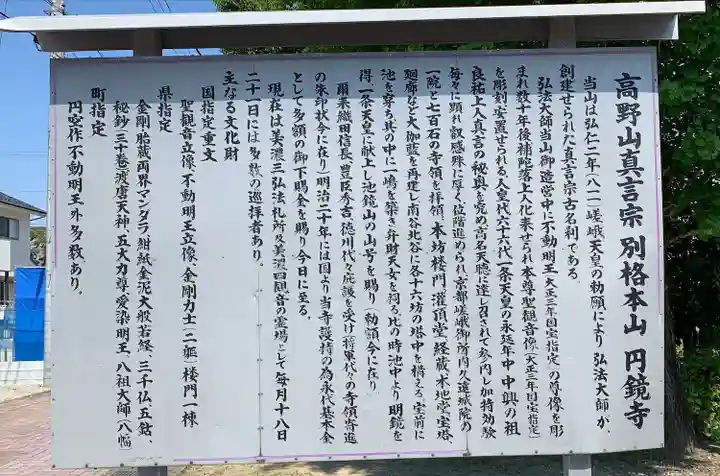 高野山真言宗 別格本山 円鏡寺
当山は弘仁二年(八一一)嵯峨天皇の勅願により、弘法大師が、
創建せられた真言宗古名刹である。
弘法大師当山御造営中に不動明王(大正三年国宝指定)の尊像を彫
まれ数十年後補陀落上人化来せられ本尊聖観音像(大正三年国宝指定)
を彫刻、安置せられる人皇代六十六代一条天皇の永延年中中興の祖
良祐上人真言の秘奥を究め高名天聴に達し召されて参内し加持効験
毎々に顕れ叡感殊に厚く位階進められ京都嵯峨御所内々遠域院の
一院と七百石の寺領を拝領、本坊楼門、灌頂堂、経蔵、本地堂宝塔、
廻廊など大伽藍を再建し南谷北谷に各十六坊の塔中を構える。宝前に
池を穿ち其の中に一嶋を築き弁財天女を祠る比の時池中より明鏡を
得一条天皇に献上し池鏡山の山号を賜り(勅額今に在り)
爾来織田信長、豊臣秀吉、徳川代々庇護を受け将軍代々の寺領寄進
の朱印状今に在り)明治二十年には国より当寺護持の為永代基本金
として多額の御下賜金を賜り今日に至る。
現在は美濃三弘法札所及美濃四観音の霊場として毎月十八日
二十一日には多数の巡拝者あり。
主なる文化財
国指定重文
聖観音立像、不動明王立像、金剛力士(二軀)楼門一棟
県指定
金剛胎蔵両界マンダラ、紺紙金泥大般若経、三千仏、五鈷、
秘鈔(三十巻)渡唐天神、五大力尊、愛染明王、八祖大師(八幅)
町指定
円空作不動明王外多数あり。